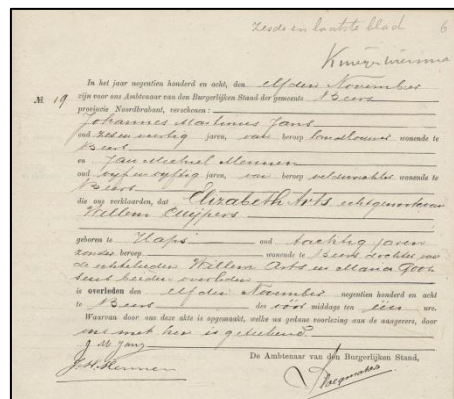 zesde en laatste blad 6
In het jaar negentien honderd en acht, den elfden November
№. 19 zijn voor ons Ambtenaar van den Burgerlijken Stand der gemeente Beers
provincie Noordbrabant, verschenen:
Johannes Martinus Jans
oud zes en veertig jaren, van beroep landbouwer wonende te
Beers
en Jan Michiel Mennen
oud vijf en vijftig jaren, van beroep veldwachter wonende te
Beers
die ons verklaarden, dat Elizabeth Arts echtgenoote van
Willem Cuypers
geboren te Haps oud tachtig jaren
zonder beroep wonende te Beers dochter van
de echtelieden Willem Arts en Maria Goos
sens beiden overleden
is overleden den elfden November negentien honderd en acht
te Beers des vóór middags te één ure.
Waarvan door ons deze akte is opgemaakt, welke na gedane voorlezing aan de aangevers, door
ons met hen is geteekend.
J M Jans
J. M. Mennen
De Ambtenaar van den Burgerlijken Stand,